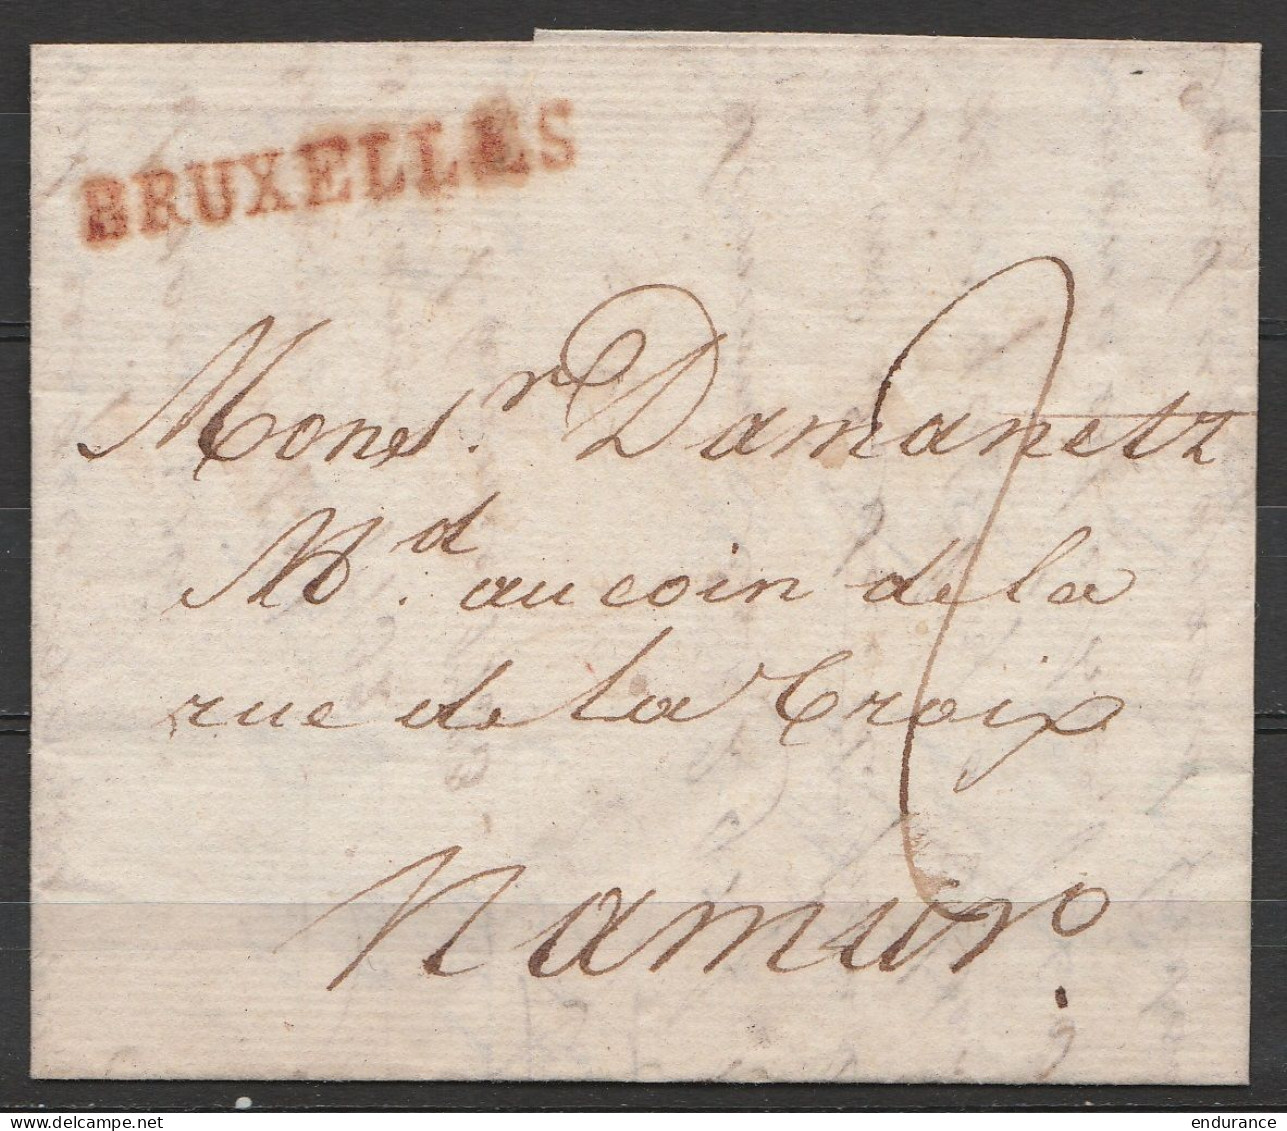 BRUXELLES
Monsr. Damanett
Md. au coin de la
rue de la Croix
Namur.
endurance